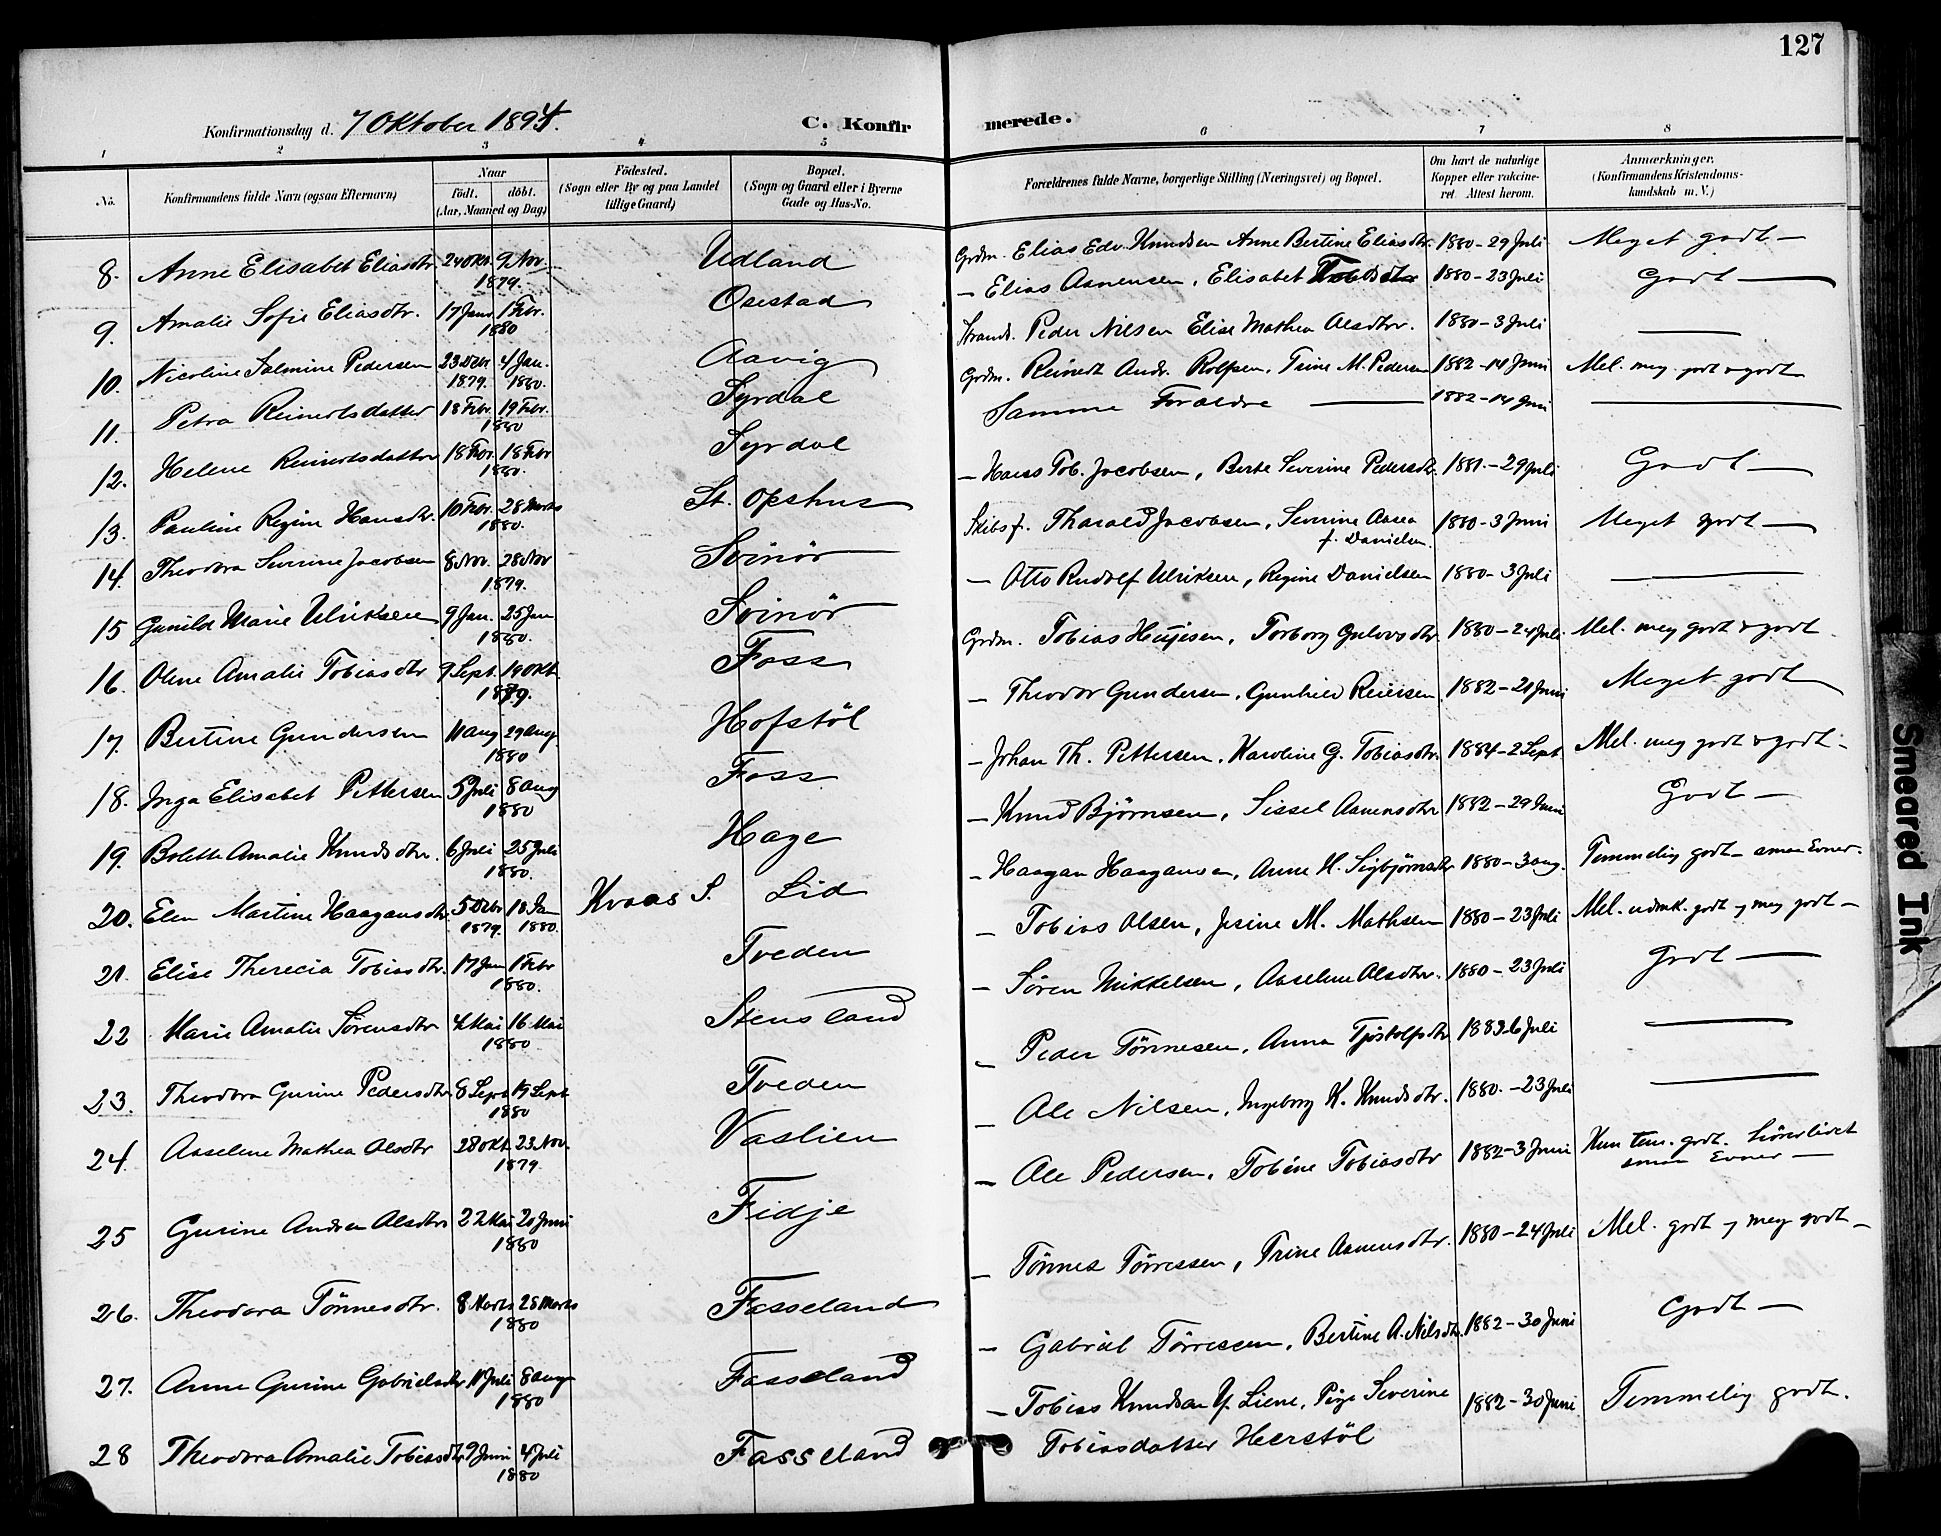 127
Konfirmationsdag d. 7 Oktober 1894.
C. Konfirmerede.
1 2 3 4 5 6 7 8
No.
Konfirmandens fulde Navn (ogsaa Efternavn)
Naar
Födt. döbt.
(Aar, Maaned og Dag)
Födested.
(Sogn eller By og paa Landet
tillige Gaard)
Bopæl.
(Sogn og Gaard eller i Byerne
Gade og Hus-No.
Forældrenes fulde Navne, borgerlige Stilling (Næringsvei) og Bopæl.
Om havt de naturlige
Kopper eller vakcine-
ret. Attest herom.
Anmærkninger.
(Konfirmandens Kristendoms-
kundskab m. V.)
8. Anne Elisabet Eliasdtr. 24 Okt. 9 Nov. 1879. Udland Grdm. Elias Edv. Knudsen Anne Bertine Eliasdtr. 1880-29 Juli Meget godt —
9. Amalie Sofie Eliasdtr. 17 Janr. 1 Febr. 1880 Osestad — Elias Aanensen, Elisabet 1880-23 Juli Godt —
10. Nicoline Salmine Pedersen 23 Dcbr. 1879. 4 Jan. 1880. Aavig Strands. Peder Nilsen Elise Mathea Olsdtr. 1880-3 Juli —
11. Petra Reinertsdatter 18 Febr. 19 Febr. 1880 Syrdal Grdm. Reinert Andr. Rolfsen, Trine M. Pedersen 1882-14 Juni Mel. meg. godt & godt
12. Helene Reinertsdatter 18 Febr. 18 Febr 1880. Syrdal Samme Forældre — 1882-14 Juni —
13. Pauline Regine Hansdtr. 10 Febr. 28 Marts 1880. St. Opshus — Hans Tob. Jacobsen, Berte Severine Pedersdtr. 1881-29 Juli Godt —
14. Theodora Severine Jacobsen 8 Nov. 28 Nov 1879. Svinör Skibsf. Tharald Jacobsen, Severine Aasea f. Danielsen. 1880-3 Juni Meget godt —
15 Gunild Marie Ulriksen 9 Jan. 25 Jan 1880. Svinör — Otto Rudolf Ulriksen, Regine Danielsen 1880-3 Juli —
16. Oline Amalie Tobiasdtr 9 Sept. 19 Okt. 1879. Foss Grdm. Tobias, Torborg Gulovsdtr. 1880-24 Juli Mel. meg godt & godt
17. Bertine Gundersen 11 Aug 29 Aug. 1880 Hofstöl — Theodor Gundersen, Gunhild Reiersen. 1882-21 Juni Meget godt
18. Inga Elisabet Pettersen 5 Juli 8 Aug 1880 Foss — Johan Th. Pettersen, Karoline G. Tobiasdtr. 1884-2 Sept. Mel. meg godt & godt —
19. Bolette Amalie Knudsdtr. 6 Juli 25 Juli 1880. Hage — Knud Björnsen, Sissel Aanensdtr 1882-29 Juni Godt —
20. Elen Martine Haagansdtr. 5 Dcbr 1879. 18 Jan 1880. Kvaas S. Lid — Haagan Haagansen, Anne H. Sigbjörnsdtr 1880-3 Aug. Temmelig godt — smaa Evner.
21. Elise Therecia Tobiasdtr. 17 Jan 1 Febr 1880. Tveden — Tobias Olsen, Josine M. Mathsen 1880-23 Juli Mel. udmk. godt og meg godt —
22 Marie Amalie Sörensdtr 4 Mai 16 Mai 1880 Stensland — Sören Mikkelsen, Aaselene Olsdtr. 1880-23 Juli Godt —
23. Theodora Gurine Pedersdtr. 8 Sept 19 Sept 1880 Tveden — Peder Tönnesen, Anna Tjöstolfsdtr 1883-6 Juli —
24. Aaselene Mathea Olsdtr 28 Okt. 23 Nov. 1879. Vaslien — Ole Nilsen, Ingeborg K. Knudsdtr. 1880-23 Juli —
25 Gurine Andrea Olsdtr 22 Mai 20 Juni 1880 Fidje — Ole Pedersen, Tobine Tobiasdtr 1882-3 Juni Kun tem. godt. smaa Evner —
26. Theodora Tönnesdtr. 8 Marts 28 Marts 1880 Fasseland — Tönnes Törressen, Trine Aanensdtr. 1880-24 Juli Mel. godt og meg godt —
27. Anne Gurine Gabrielsdtr 11 Juli 8 Aug 1880 Fasseland — Gabriel Törressen, Bertine A. Nilsdtr. 1882-30 Juni Godt —
28 Theodora Amalie Tobiasdtr 9 Juni 4 Juli 1880 Fasseland — Tobias Knudsen Liene, Pige Severine 1882-30 Juni Temmelig godt.
Tobiasdatter Heerstöl
Smeared Ink